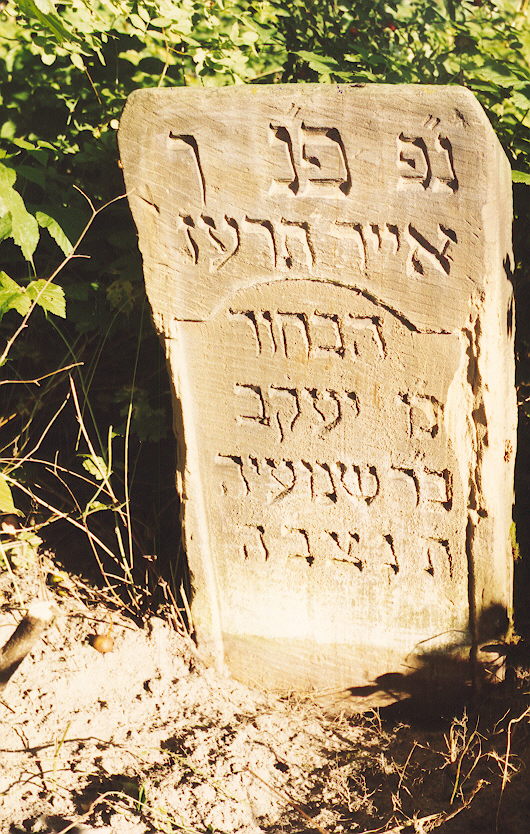 נ״פ פ״נ ך
אייר תרעז
הבחור
מ׳ יעקב
בר שמועיה
ת נ צ ב ה